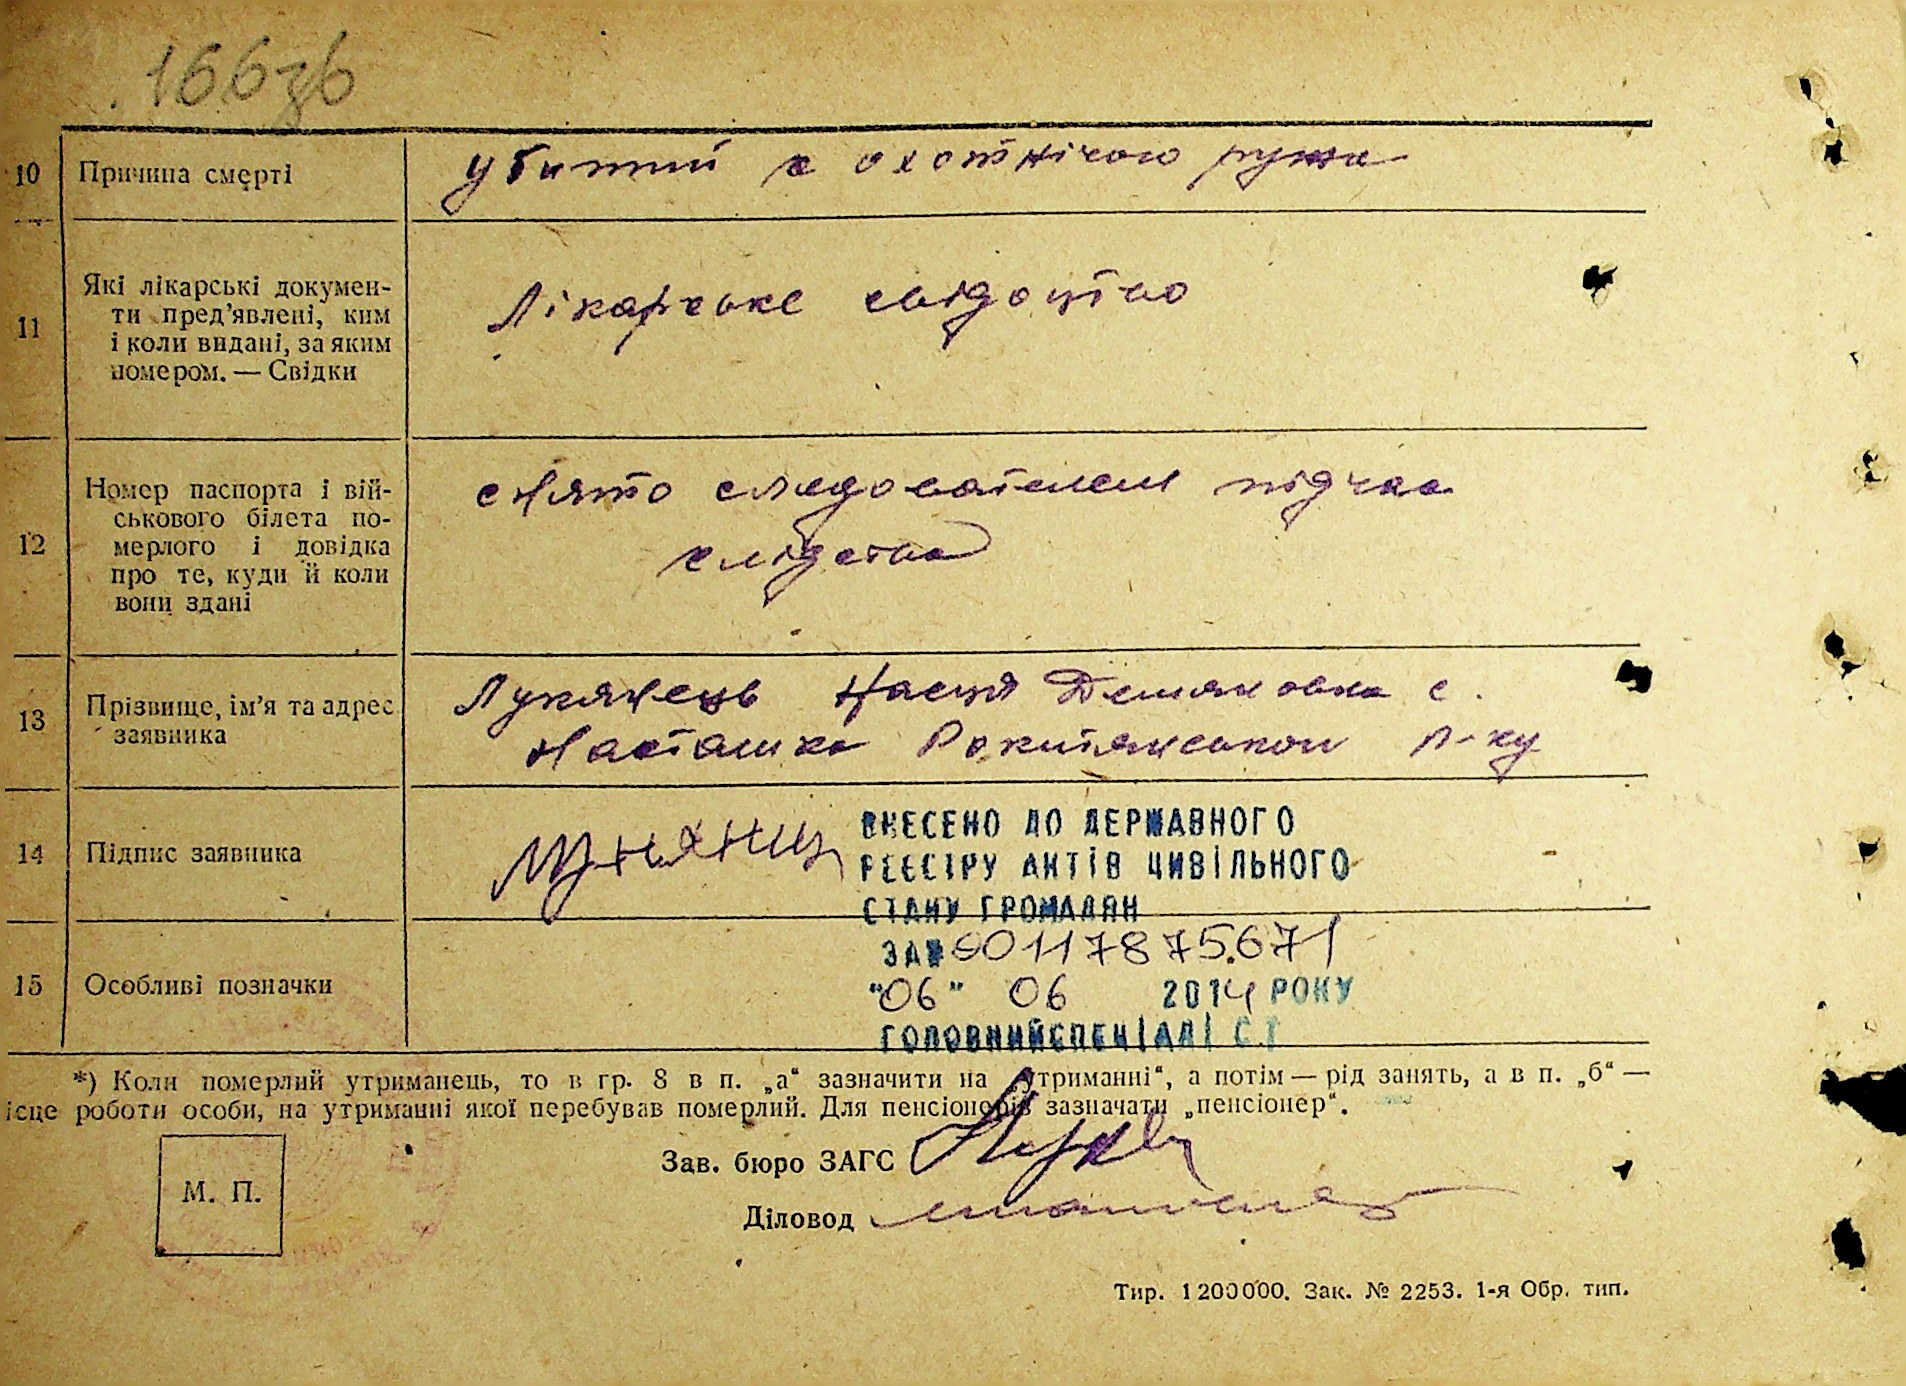 166зв
10 Причина смерті
убитий с охотнічого ружа
11 Які лікарські докумен-
ти пред’явлені, ким
і коли видані, за яким
номером. — Свідки
Лікарське свідоцтво
12 Номер паспорта і вій-
ськового білета по-
мерлого і довідка
про те, куди й коли
вони здані
снято следователем підчас
слідства
13 Прізвище, ім’я та адрес
заявника
Лукянець Настя Демяновна с.
Насташка Рокитянського р-ку
14 Підпис заявника
ВНЕСЕНО ДО ДЕРЖАВНОГО
РЕЄСТРУ АКТІВ ЦИВІЛЬНОГО
СТАНУ ГРОМАДЯН
ЗА № 00117875671
"06" 06 2014 РОКУ
ГОЛОВНИЙ СПЕЦІАЛІСТ
15 Особливі позначки
*) Коли померлий утриманець, то в гр. 8 в п. „а“ зазначити на „утриманні“, а потім — рід занять, а в п. „б“ —
ісце роботи особи, на утриманні якої перебував померлий. Для пенсіонерів зазначати „пенсіонер“.
М. П.
Зав. бюро ЗАГС
Діловод
Тир. 1200000. Зак. № 2253. 1-я Обр. тип.